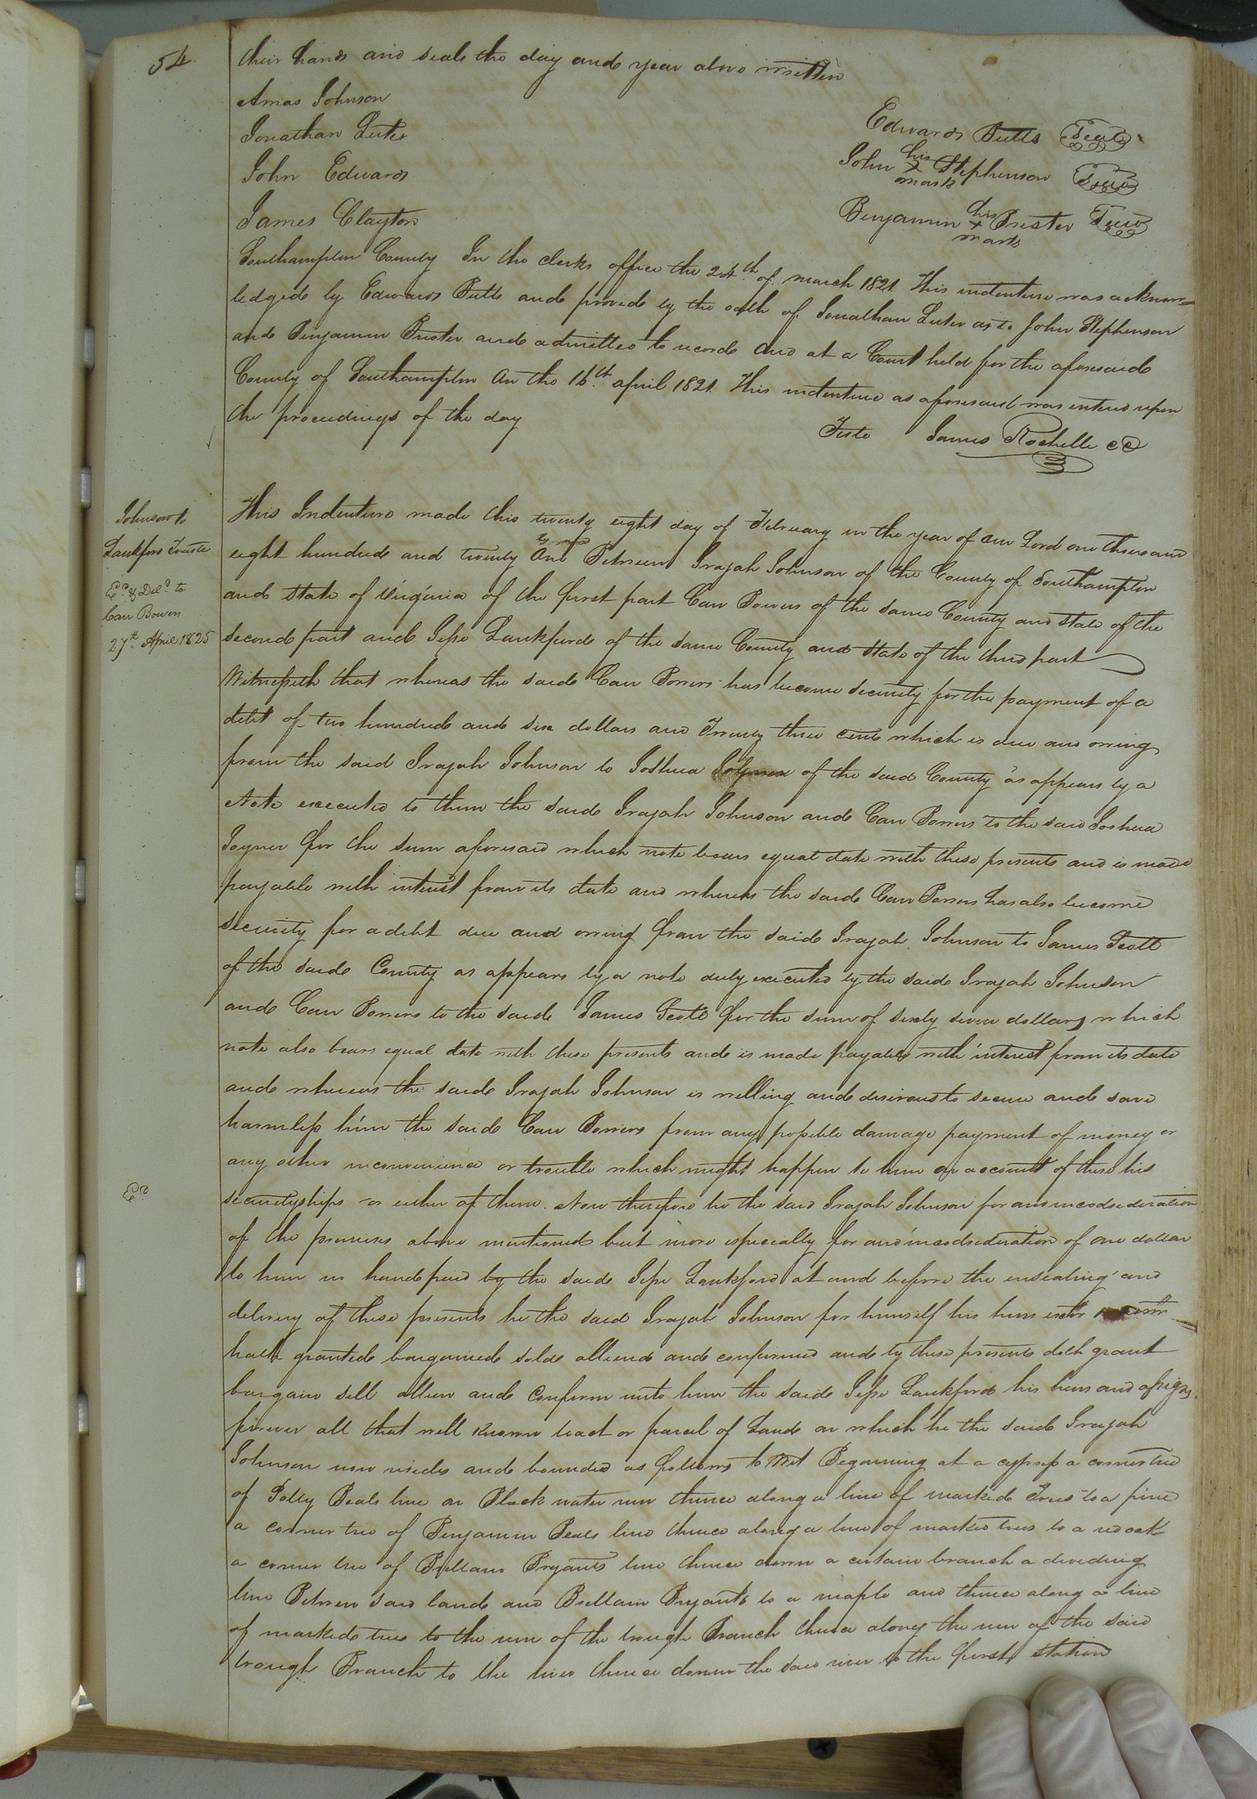 54
their hands and seals the day and year above written
Amos Johnson
Jonathan Luter
John Edwards
James Clayton
Edwards Butts Seal
John his x mark Stephenson Seal
Benjamin his x mark Prister Seal
Southampton County In the clerks office the 24th of march 1821 This indenture was acknow=
ledged by Edwards Butts and proved by the oath of Jonathan Luter as to John Stephenson
and Benjamin Prister and admitted to record And at a Court held for the aforesaid
County of Southampton on the 16th april 1821 This indenture as aforesaid was entered upon
the proceedings of the day
Teste James Rochelle CC
Johnson to
Lankford Trustee
Ex.d & Del.d to
Carr Bowers
27th April 1825
This Indenture made this twenty eight day of February in the year of our Lord one thousand
eight hundred and twenty one Between Irajah Johnson of the County of Southampton
and State of Virginia of the first part Carr Bowers of the same County and state of the
second part and Jesse Lankford of the same County and State of the third part
Witnesseth that whereas the said Carr Bowers has become security for the payment of a
debt of two hundred and six dollars and Twenty three cents which is due and owing
from the said Irajah Johnson to Joshua of the said County as appears by a
Note executed to them the said Irajah Johnson and Carr Bowers to the said Joshua
Joyner for the sum aforesaid which note bears equal date with these presents and is made
payable with interest from its date and whereas the said Carr Bowers has also become
security for a debt due and owing from the said Irajah Johnson to James Scott
of the said County as appears by a note duly executed by the said Irajah Johnson
and Carr Bowers to the said James Scott for the sum of sixty seven dollars which
note also bears equal date with these presents and is made payable with interest from its date
and whereas the said Irajah Johnson is willing and desirous to secure and save
harmless him the said Carr Bowers from any possible damage payment of money or
any other inconvenience or trouble which might happen to him on account of these his
Ex.d
securityships or either of them. Now therefore he the said Irajah Johnson for and in consideration
of the premises above mentioned but more especially for and in consideration of one dollar
to him in hand paid by the said Jesse Lankford at and before the ensealing and
delivery of these presents he the said Irajah Johnson for himself his heirs
hath granted bargained sold aliened and confirmed and by these presents doth grant
bargain sell alien and Confirm unto him the said Jesse Lankford his heirs and assigns
forever all that well known tract or parcel of Land on which he the said Irajah
Johnson now resides and bounded as follows to Wit Beginning at a cypress a corner tree
of Polly Beals line on Black water run thence along a line of marked Trees to a pine
a corner tree of Benjamin Beals line thence along a line of marked trees to a red oak
a corner tree of Brittain Bryants line thence down a certain branch a dividing
line Between said land and Brittain Bryants to a maple and thence along a line
of marked trees to the run of the trough Branch thence along the run of the said
trough Branch to the river thence down the said river to the first station